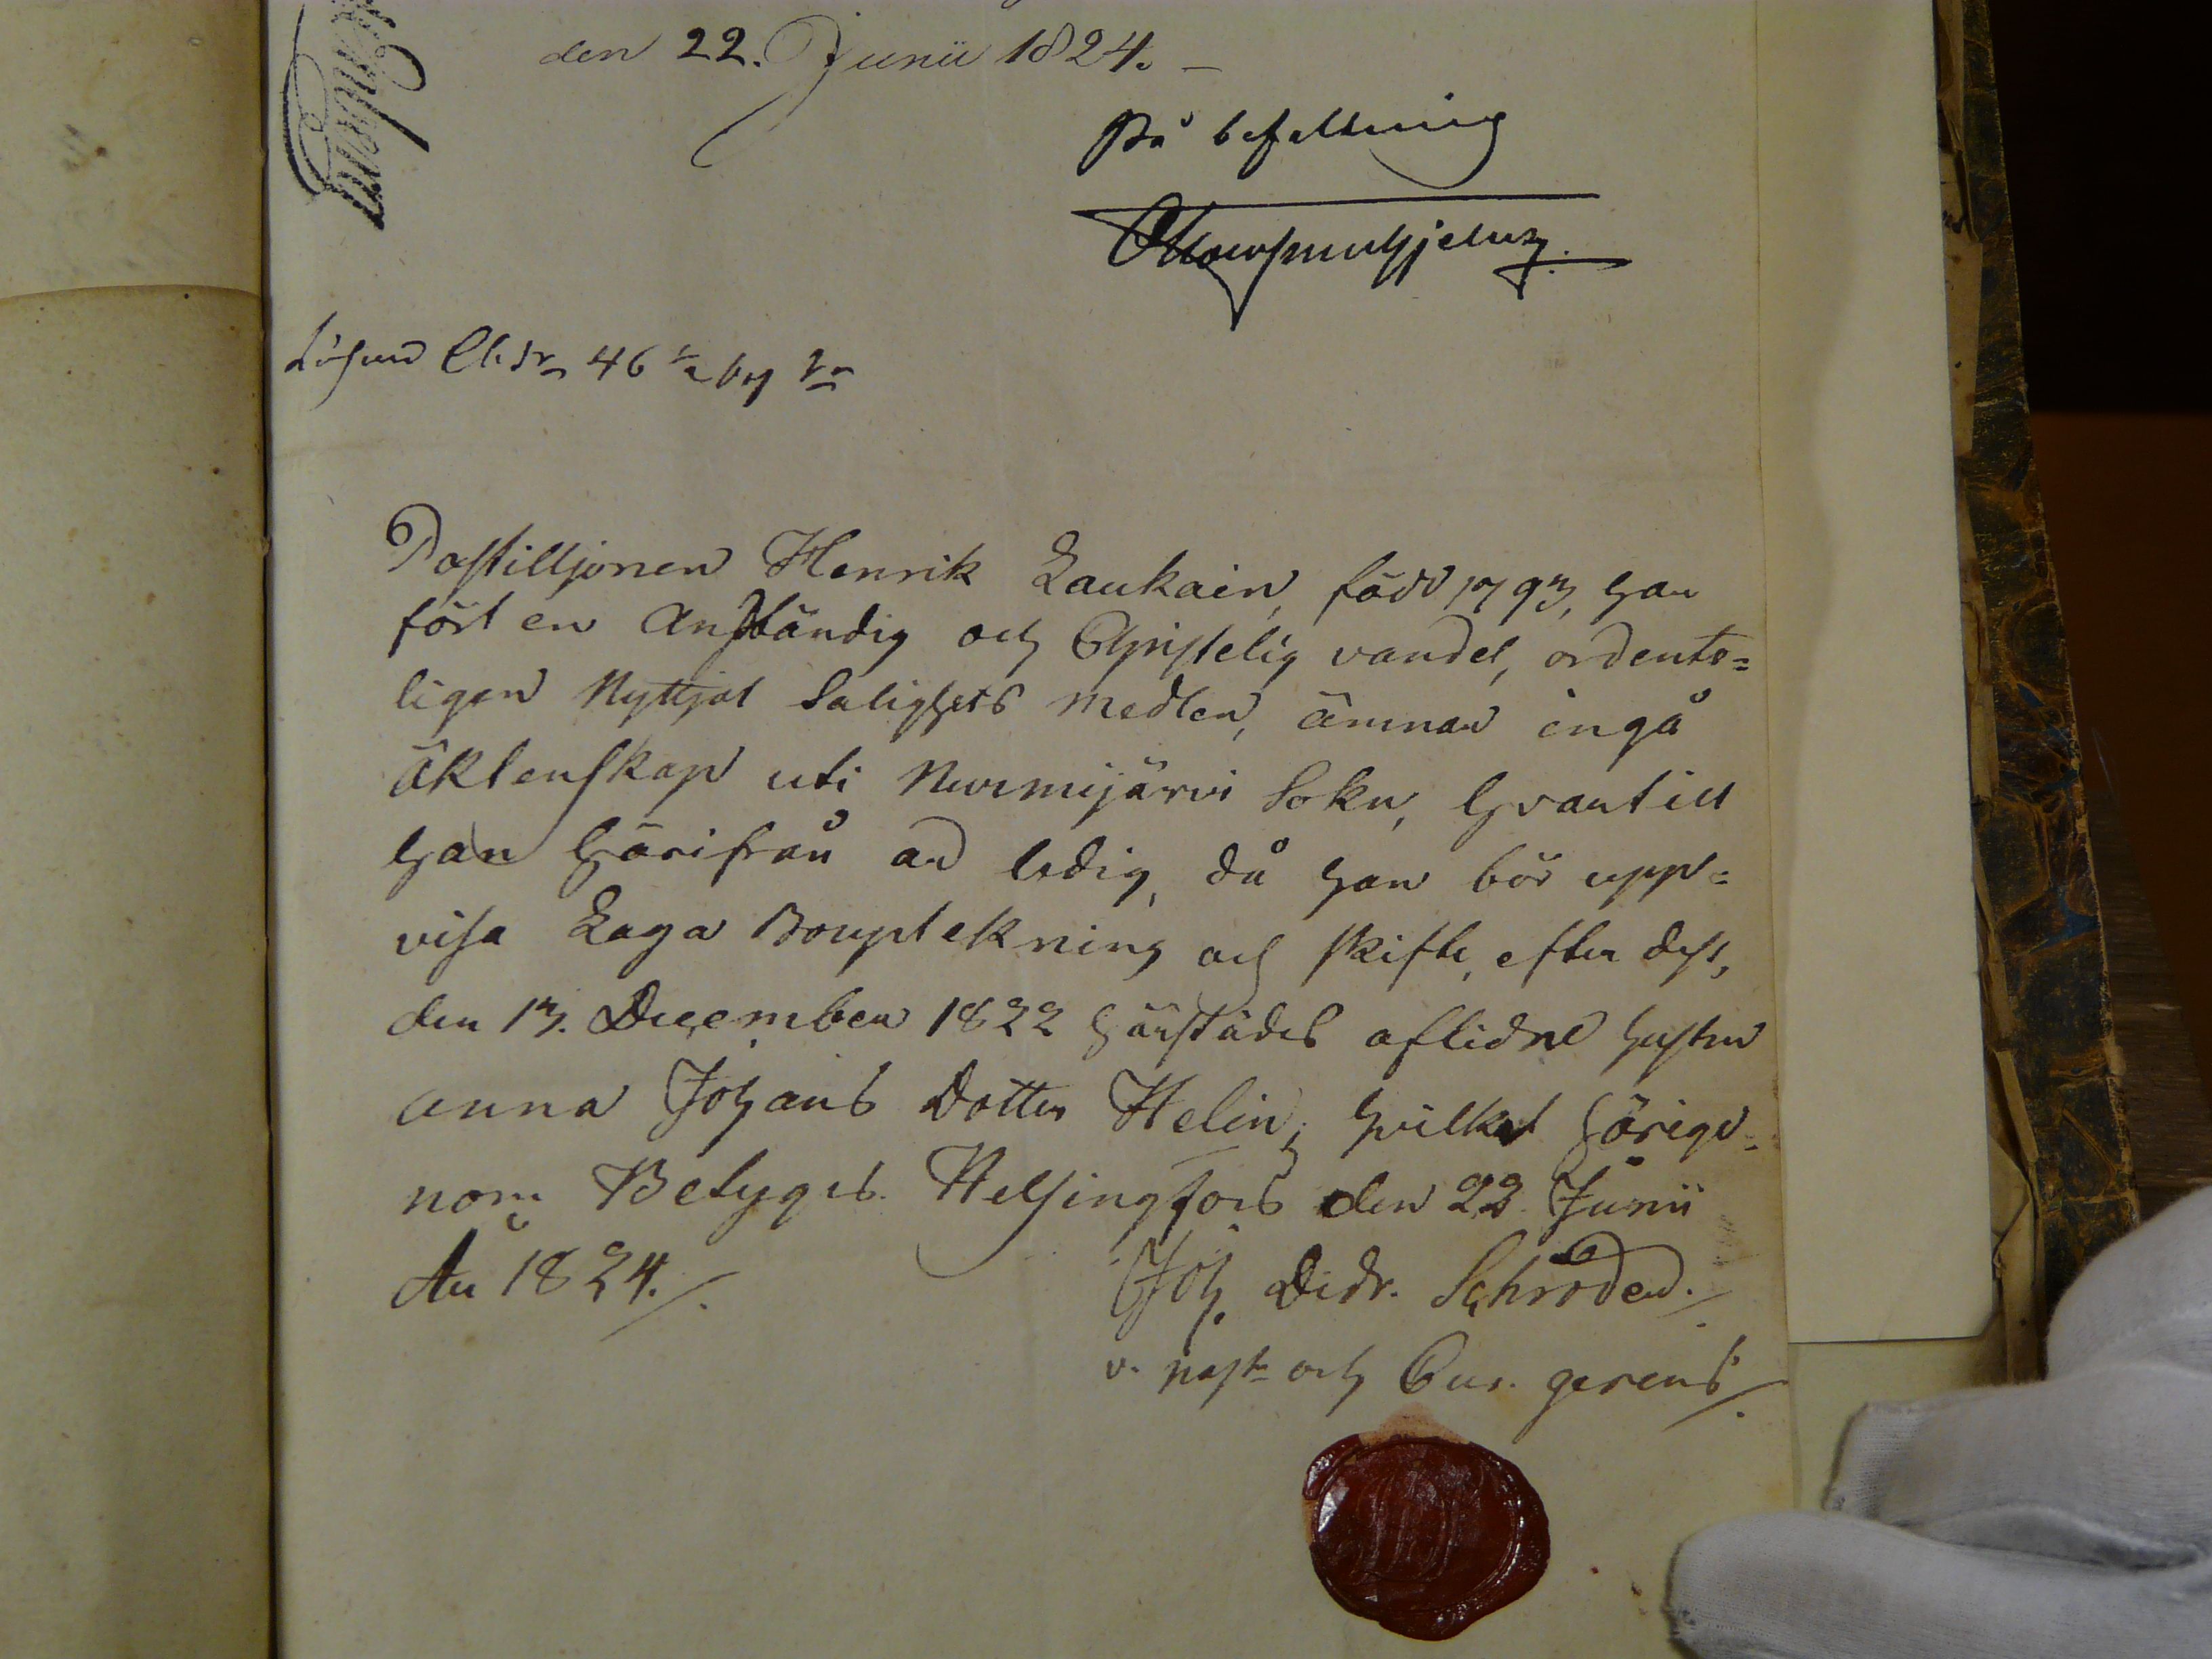 den 22. Junii 1824. —
På befallning
Lösen 46
Postilljonen Henrik Laukain, född 1793, har
fört en Anständig och Christelig vandel, ordente=
ligen Nyttjat Salighets medlen, ämnar ingå
äktenskap uti Nurmijärvi Sokn, hvartill
han härifrån är ledig, då han bör upp=
visa Laga Bouptekning och skifte, efter dess,
den 13. December 1822 härstädes aflidne hustru
Anna Johans Dotter Helin; hvilket härige=
nom Betyges. Helsingfors den 23 Junii
År 1824./.
Joh. Didr. Schröder./.
v. past. och Cur. gerens/.